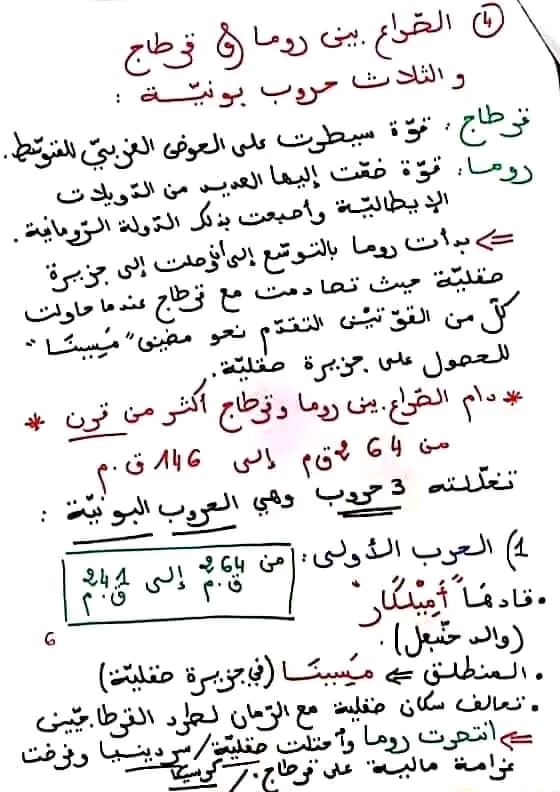 ④ الصّراع بين روما و قرطاج
و الثلاث حروب بونيّة :
قرطاج : قوّة سيطرت على الحوض الغربيّ للمتوسّط.
روما : قوّة ضمّت إليها العديد من الدّويلات
الإيطاليّة وأصبحت بذلك الدّولة الرّومانية .
⇐ بدأت روما بالتوسّع إلى أن وصلت إلى جزيرة
صقليّة حيث تصادمت مع قرطاج عندما حاولت
كلّ من القوّتين التقدّم نحو مضيق "مَيسِينَا"
للحصول على جزيرة صقليّة.
* دام الصّراع بين روما وقرطاج أكثر من قرن *
من 264 ق.م إلى 146 ق.م
تخلّلته 3 حروب وهي الحروب البونيّة :
1) الحرب الأولى : من 264 ق.م إلى 241 ق.م
• قادهَا "أَمِيلْكَار"
(والد حنّبعل).
6
• المنطلق ⇐ مَيسِينَا (في جزيرة صقليّة)
• تحالف سكان صقلية مع الرّمان لطرد القرطاجيّين
⇐ انتصرت روما وأحتلت صقليّة / سردينيا وفرضت
غرامة مالية على قرطاج. / كورسيكا